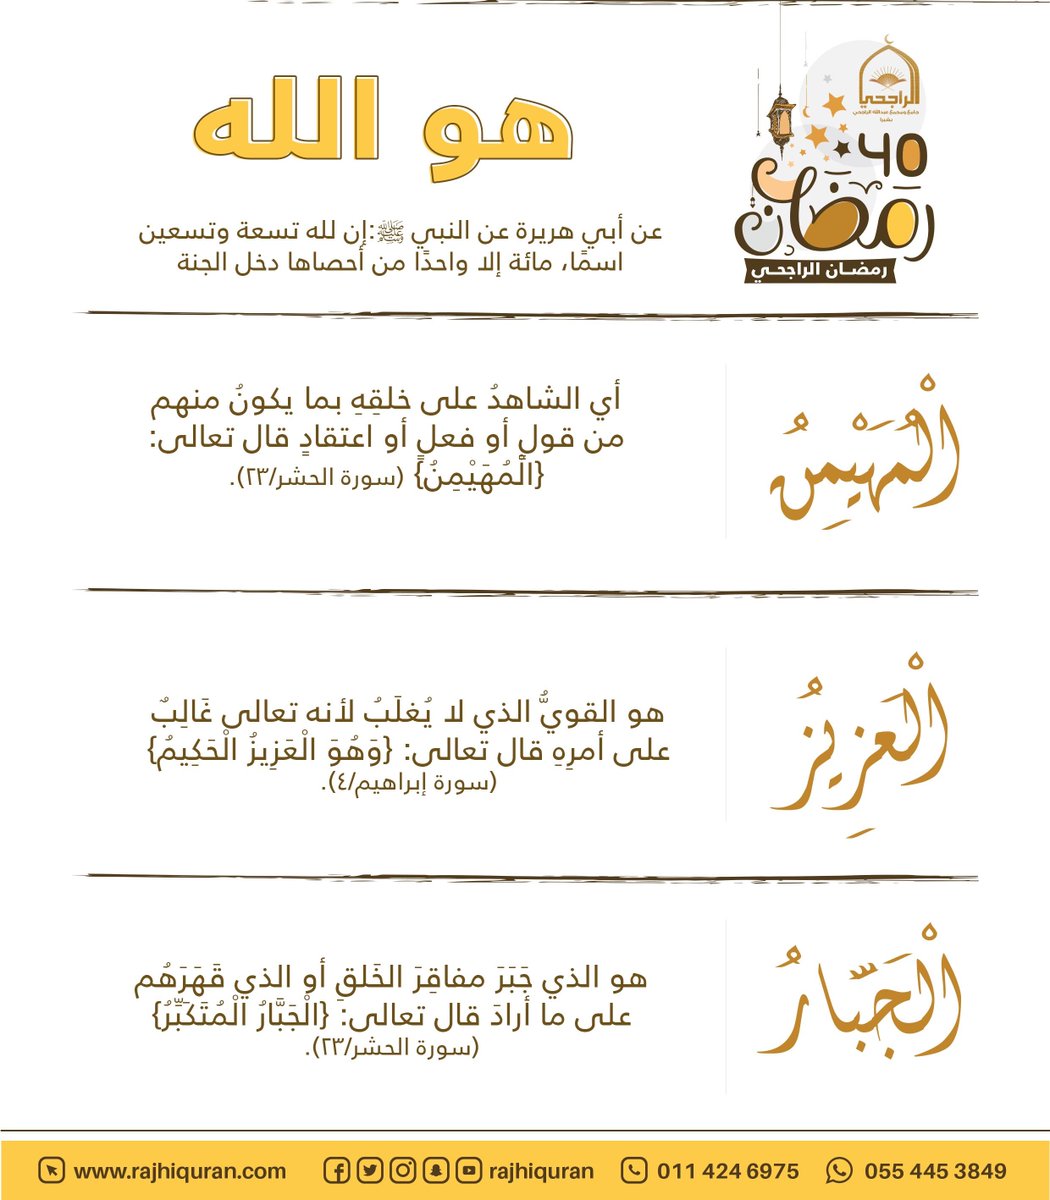 الراجحي
جامع ومجمع عبدالله الراجحي
بشبرا
٤٥
رمضان
رمضـان الراجحـي
هو الله
عن أبي هريرة عن النبي ﷺ:إن لله تسعة وتسعين
اسمًا، مائة إلا واحدًا من أحصاها دخل الجنة
الْمُهَيْمِنُ
أي الشاهدُ على خلقِهِ بما يكونُ منهم
من قولٍ أو فعلٍ أو اعتقادٍ قال تعالى:
{الْمُهَيْمِنُ} (سورة الحشر/٢٣).
الْعَزِيزُ
هو القويُّ الذي لا يُغلَبُ لأنه تعالى غَالِبٌ
على أمرِهِ قال تعالى: {وَهُوَ الْعَزِيزُ الْحَكِيمُ}
(سورة إبراهيم/٤).
الْجَبَّارُ
هو الذي جَبَرَ مفاقِرَ الخَلقِ أو الذي قَهَرَهُم
على ما أرادَ قال تعالى: {الْجَبَّارُ الْمُتَكَبِّرُ}
(سورة الحشر/٢٣).
www.rajhiquran.com rajhiquran 011 424 6975 055 445 3849